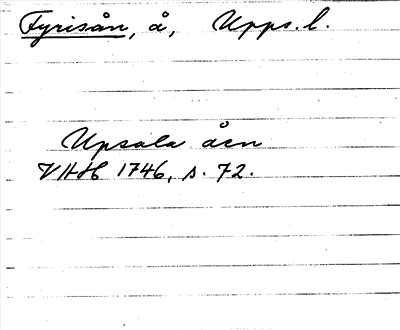 Fyrisån, å, Upps. l.
Upsala åen
VHH 1746, s. 72.